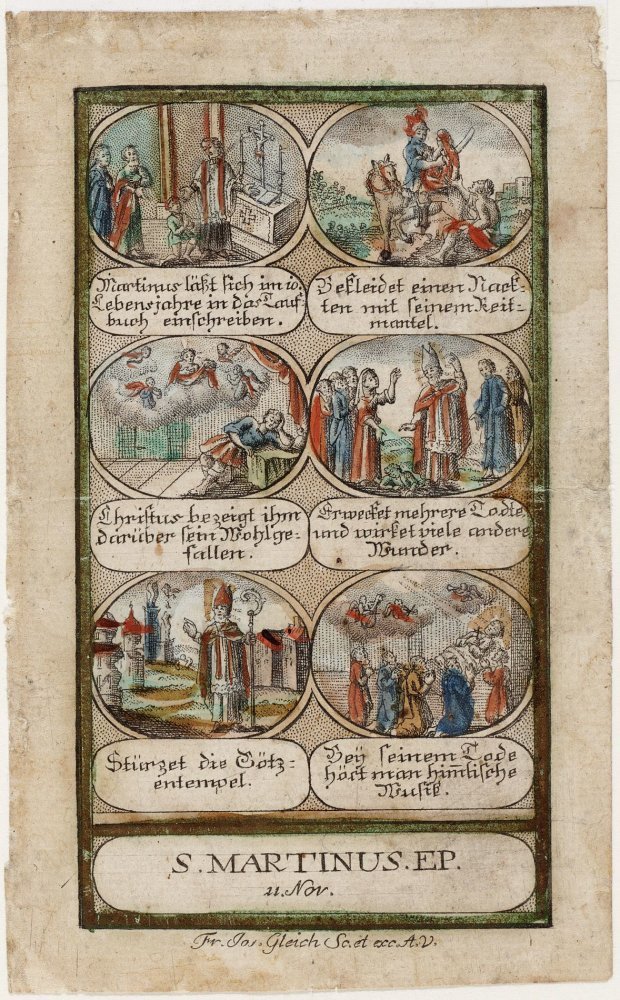 Martinus läßt sich im 10.
Lebensjahre in das Tauf-
buch einschreiben.
Bekleidet einen Nack-
ten mit seinem Reit-
mantel.
Christus bezeigt ihm
darüber sein Wohlge-
fallen.
Erwecket mehrere Todte,
und wirket viele andere
Wunder.
Stürzet die Götz-
entempel.
Bey seinem Tode
hört man him̄lische
Musik.
S. MARTINUS. EP.
11. Nov.
Fr. Jos. Gleich Sc. et exc. A.V.